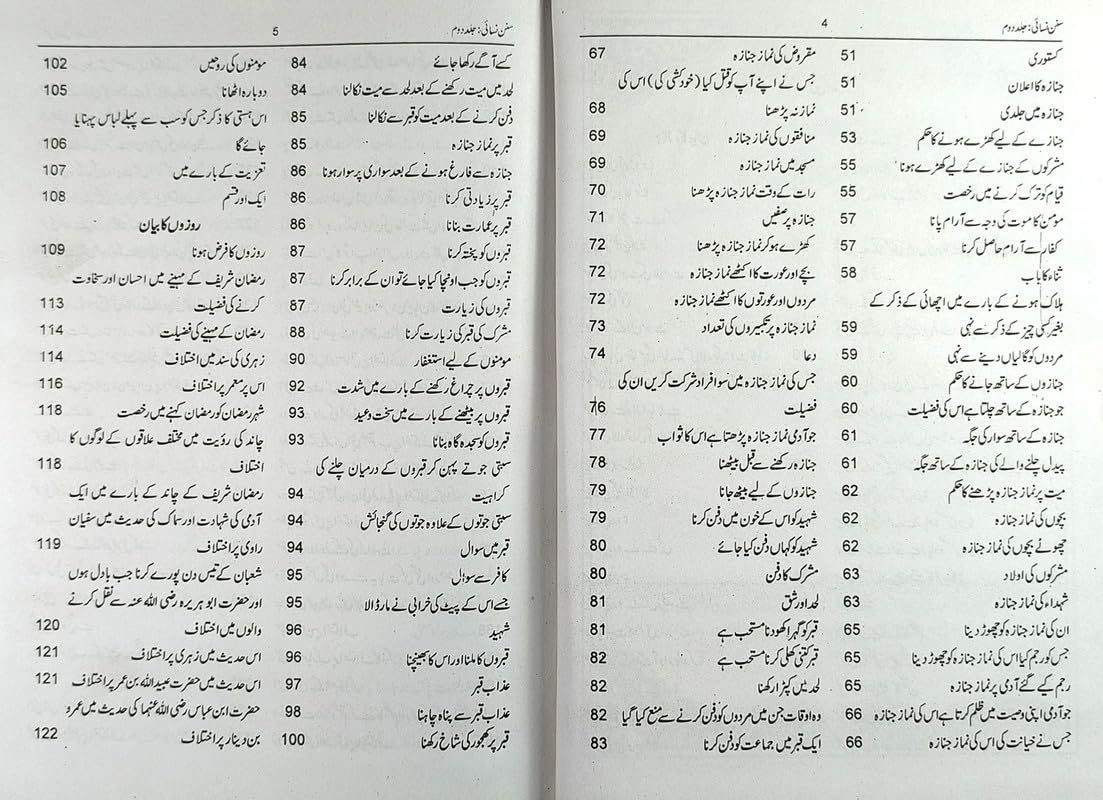 سنن نسائی: جلد دوم 4
کستوری 51
جنازہ کا اعلان 51
جنازہ میں جلدی 51
جنازے کے لیے کھڑے ہونے کا حکم 53
مشرکوں کے جنازے کے لیے کھڑے ہونا 55
قیام کو ترک کرنے میں رخصت 55
مومن کا موت کی وجہ سے آرام پانا 57
کفار سے آرام حاصل کرنا 57
ثناء کا باب 58
ہلاک ہونے کے بارے میں اچھائی کے ذکر کے
بغیر کسی چیز کے ذکر سے نہی 59
مردوں کو گالیاں دینے سے نہی 59
جنازوں کے ساتھ جانے کا حکم 60
جو جنازہ کے ساتھ چلتا ہے اس کی فضیلت 60
جنازہ کے ساتھ سوار کی جگہ 61
پیدل چلنے والے کی جنازہ کے ساتھ جگہ 61
میت پر نماز جنازہ پڑھنے کا حکم 62
بچوں کی نماز جنازہ 62
چھوٹے بچوں کی نماز جنازہ 62
مشرکوں کی اولاد 63
شہداء کی نماز جنازہ 63
ان کی نماز جنازہ کو چھوڑ دینا 65
جس کو رجم کیا اس کی نماز جنازہ کو چھوڑ دینا 65
رجم کیے گئے آدمی پر نماز جنازہ 65
جو آدمی اپنی وصیت میں ظلم کرتا ہے اس کی نماز جنازہ 66
جس نے خیانت کی اس کی نماز جنازہ 66
مقروض کی نماز جنازہ 67
جس نے اپنے آپ کو قتل کیا (خودکشی کی) اس کی
نماز نہ پڑھنا 68
منافقوں کی نماز جنازہ 69
مسجد میں نماز جنازہ 69
رات کے وقت نماز جنازہ پڑھنا 70
جنازہ پر صفیں 71
کھڑے ہو کر نماز جنازہ پڑھنا 72
بچے اور عورت کا اکٹھے نماز جنازہ 72
مردوں اور عورتوں کا اکٹھے نماز جنازہ 72
نماز جنازہ پر تکبیروں کی تعداد 73
دعا 74
جس کی نماز جنازہ میں سو افراد شرکت کریں ان کی
فضیلت 76
جو آدمی نماز جنازہ پڑھتا ہے اس کا ثواب 77
جنازہ رکھنے سے قبل بیٹھنا 78
جنازوں کے لیے بیٹھ جانا 79
شہید کو اس کے خون میں دفن کرنا 79
شہید کو کہاں دفن کیا جائے 80
مشرک کا دفن 80
لحد اور شق 81
قبر کو گہرا کھودنا مستحب ہے 81
قبر کتنی کھلی کرنا مستحب ہے 82
لحد میں کپڑا رکھنا 82
وہ اوقات جن میں مردوں کو دفن کرنے سے منع کیا گیا 82
ایک قبر میں جماعت کو دفن کرنا 83
سنن نسائی: جلد دوم 5
کسے آگے رکھا جائے 84
لحد میں میت رکھنے کے بعد لحد سے میت نکالنا 84
دفن کرنے کے بعد میت کو قبر سے نکالنا 85
قبر پر نماز جنازہ 85
جنازہ سے فارغ ہونے کے بعد سواری پر سوار ہونا 86
قبر پر زیادتی کرنا 86
قبر پر عمارت بنانا 86
قبروں کو پختہ کرنا 87
قبروں کو جب اونچا کیا جائے تو ان کے برابر کرنا 87
قبروں کی زیارت 87
مشرک کی قبر کی زیارت کرنا 88
مومنوں کے لیے استغفار 90
قبروں پر چراغ رکھنے کے بارے میں شدت 92
قبروں پر بیٹھنے کے بارے میں سخت وعید 93
قبروں کو سجدہ گاہ بنانا 93
سبتی جوتے پہن کر قبروں کے درمیان چلنے کی
کراہیت 94
سبتی جوتوں کے علاوہ جوتوں کی گنجائش 94
قبر میں سوال 94
کافر سے سوال 95
جسے اس کے پیٹ کی خرابی نے مار ڈالا 95
شہید 96
قبروں کا ملنا اور اس کا بھینچنا 96
عذاب قبر 97
عذاب قبر سے پناہ چاہنا 98
قبر پر کھجور کی شاخ رکھنا 100
مومنوں کی روحیں 102
دوبارہ اٹھانا 105
اس ہستی کا ذکر جس کو سب سے پہلے لباس پہنایا
جائے گا 106
تعزیت کے بارے میں 107
ایک اور قسم 108
روزوں کا بیان
روزوں کا فرض ہونا 109
رمضان شریف کے مہینے میں احسان اور سخاوت
کرنے کی فضیلت 113
رمضان کے مہینے کی فضیلت 114
زہری کی سند میں اختلاف 114
اس پر معمر پر اختلاف 116
شہر رمضان کو رمضان کہنے میں رخصت 118
چاند کی رؤیت میں مختلف علاقوں کے لوگوں کا
اختلاف 118
رمضان شریف کے چاند کے بارے میں ایک
آدمی کی شہادت اور سماک کی حدیث میں سفیان
راوی پر اختلاف 119
شعبان کے تیس دن پورے کرنا جب بادل ہوں
اور حضرت ابو ہریرہ رضی اللہ عنہ سے نقل کرنے
والوں میں اختلاف 120
اس حدیث میں زہری پر اختلاف 121
اس حدیث میں حضرت عبید اللہ بن عمر پر اختلاف 121
حضرت ابن عباس رضی اللہ عنہما کی حدیث میں عمرو
بن دینار پر اختلاف 122